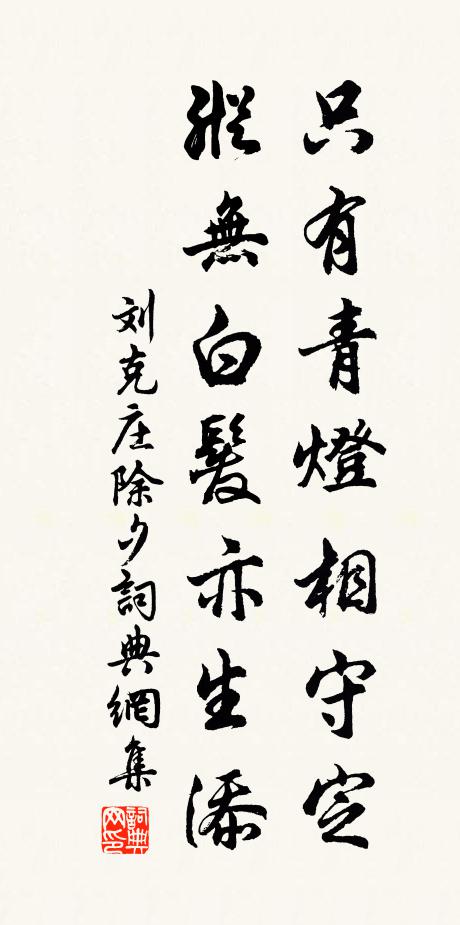 只有青燈相守定
縱無白髮亦生添
刘克庄除夕詞典網集
詞典网印